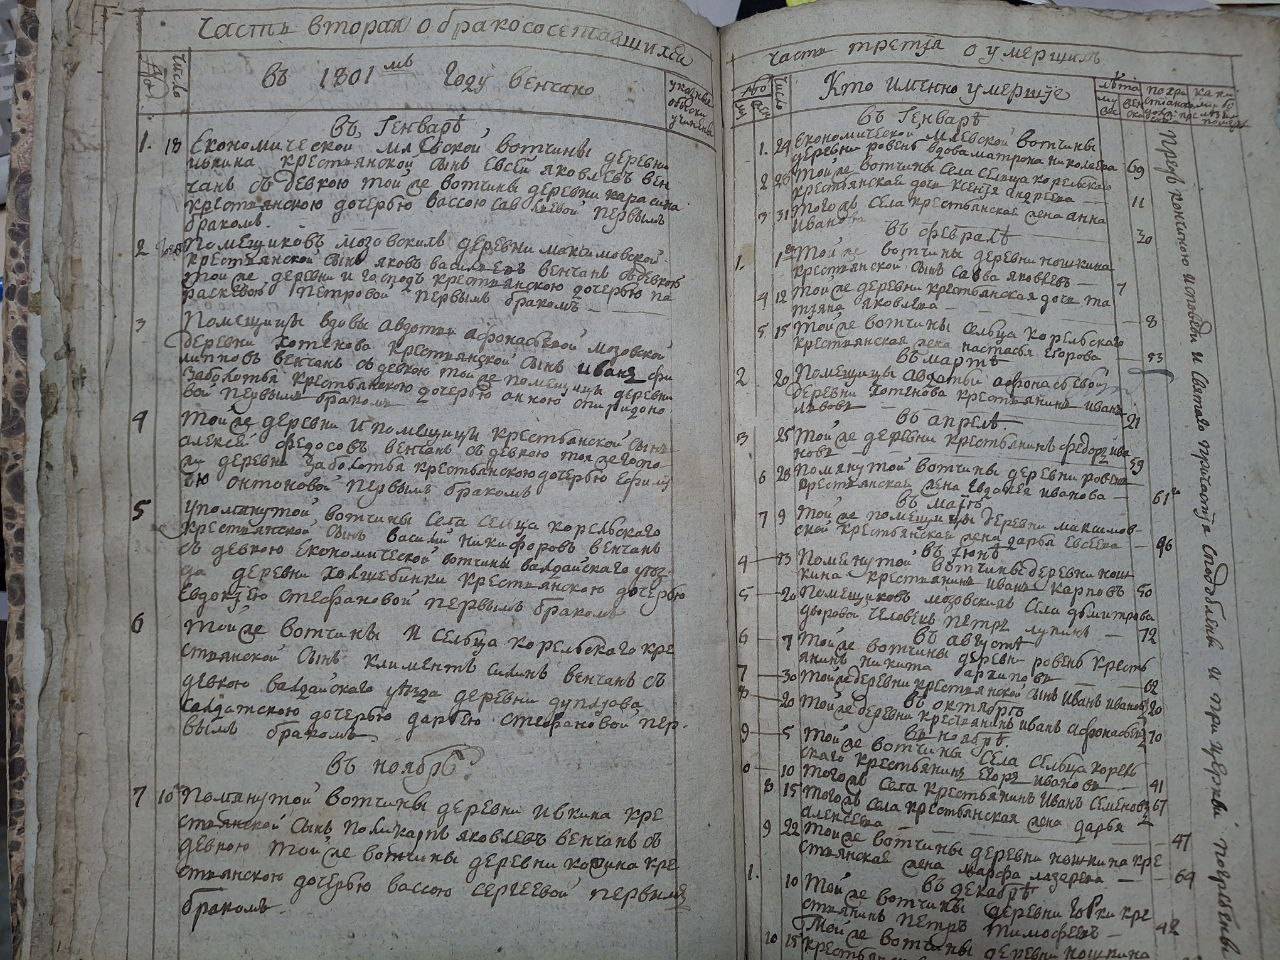 Часть вторая о бракосочетавшихся
Число
Въ 1801мъ Году венчано
Въ Генварѣ
1. 18 Економической Млевской вотчины деревни
Ивкина крестьянской сынъ Евсей Яковлевъ вен
чанъ съ девкою той же вотчины деревни
крестьянскою дочерью Вассою Савельевой первымъ
бракомъ.
2 Помещиковъ Мозовскихъ деревни Максимовской
крестьянской сынъ Яковъ Васильевъ венчанъ съ девкою
той же деревни и господъ крестьянскою дочерью Па
раскевою Петровой первымъ бракомъ
3 Помещицы вдовы Авдотьи Афонасьевой Мозовской
деревни Хотенова крестьянской сынъ Иванъ Фи
липповъ венчанъ съ девкою той же помещицы деревни
Заболотья крестьянскою дочерью Анною Спиридоно
вой первымъ бракомъ
4 Той же деревни и помещицы крестьянской сынъ
Алексей Федосовъ венчанъ съ девкою той же госпо
жи деревни Заболотья крестьянскою дочерью
Онтоновой первымъ бракомъ
5 Упомянутой вотчины села Сельца Корельскаго
крестьянской сынъ Василий Никифоровъ венчанъ
съ девкою Економической вотчины Валдайскаго уѣз
да деревни крестьянскою дочерью
Евдокиею Стефановой первымъ бракомъ
6 Той же вотчины и Сельца Корельского кре
стьянской сынъ Климентъ венчанъ съ
девкою Валдайскаго уѣзда деревни Дуплова
салдатскою дочерью Дарьею Стефановой пер-
вымъ бракомъ
Въ Ноябрѣ
7 10 Помянутой вотчины деревни Ивкина кре
стьянской сынъ Поликарпъ Яковлевъ венчанъ съ
девкою той же вотчины деревни кре
стьянскою дочерью Вассою Сергеевой первымъ
бракомъ.
Часть третiя о умершихъ
Число
Кто имянно умершiе
Лѣта
Въ Генварѣ
1. 24 Економической Млевской вотчины
деревни Ровень вдова Матрона Николаева 69
2 28 Той же вотчины села Сельца Корельскаго
крестьянская дочь Ксенiя Андреева 11
3 31 Тогожъ села крестьянская жена Анна
Иванова 30
Въ Февралѣ
1. Той же вотчины деревни Ношкина
крестьянской сынъ Савва Яковлевъ 7
4 12 Той же деревни крестьянская дочь Та
тьяна Яковлева 8
5 15 Той же вотчины Сельца Корельскаго
крестьянская жена Настасья Егорова 53
Въ Мартѣ
2 20 Помещицы Авдотьи Афонасьевой
деревни Хотенова крестьянинъ Иванъ
Львовъ 21
Въ Апрелѣ.
3 25 Той же деревни крестьянинъ Федоръ Ива
новъ 59
6 28 Помянутой вотчины деревни Ровень
крестьянская жена Евдокея Иванова 61
Въ Маiѣ
7 9 Той же помещицы деревни Максимов-
ской крестьянская жена Дарья Евсеева 46
Въ Iюнѣ
4 13 Помянутой вотчины деревни Нош
кина крестьянинъ Иванъ Карповъ 50
5 20 Помещиковъ Мозовскихъ села Домитрова
дворовой человекъ Петръ Лупинъ 72
Въ Августѣ
6 7 Той же вотчины деревни Ровень кресть
янинъ Никита Архиповъ 62
7 30 Той же деревни крестьянской сынъ Иванъ Ивановъ 20
Въ Октябрѣ
8 20 Той же деревни крестьянинъ Иванъ Афонасьевъ 70
Въ Ноябрѣ.
9 5 Той же вотчины села Сельца Корель
скаго крестьянинъ Егоръ Ивановъ 41
10 Тогожъ села крестьянинъ Иванъ Семеновъ 67
8 15 Тогожъ села крестьянская жена Дарья
Алексеева 47
9 22 Той же вотчины деревни Ношкина кре
стьянская жена Марфа Лазарева 64
Въ Декабрѣ
10 Той же вотчины деревни Горки кре
стьянинъ Петръ Тимофеевъ 42
10 15 Той же вотчины деревни Ношкина
Предъ кончиною исповѣди и Святаго Причастiя сподоблены и при церкви погребены